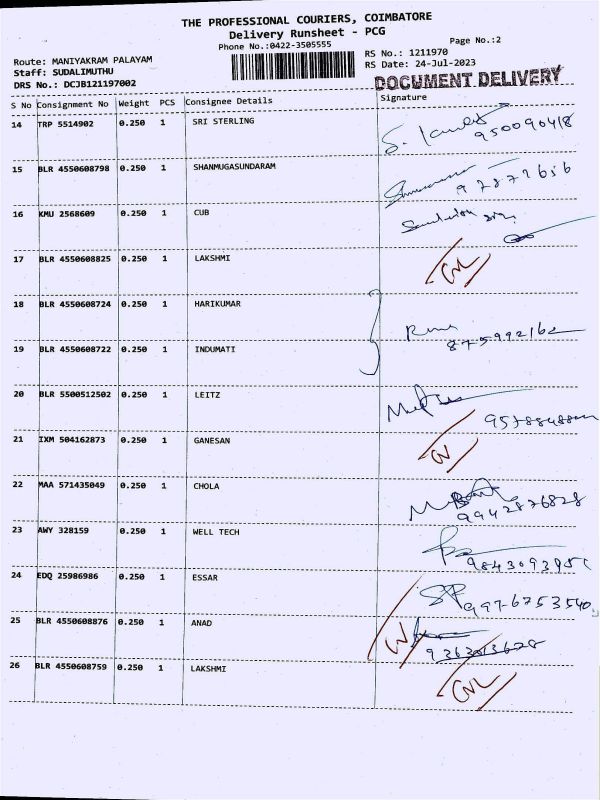 THE PROFESSIONAL COURIERS, COIMBATORE
Delivery Runsheet - PCG
Phone No.:0422-3505555
Page No.:2
Route: MANIYAKRAM PALAYAM
Staff: SUDALIMUTHU
DRS No.: DCJB121197002
RS No.: 1211970
RS Date: 24-Jul-2023
DOCUMENT DELIVERY
S No Consignment No Weight PCS Consignee Details Signature
14 TRP 5514902 0.250 1 SRI STERLING
950090418
15 BLR 4550608798 0.250 1 SHANMUGASUNDARAM
16 KMU 2568609 0.250 1 CUB
17 BLR 4550608825 0.250 1 LAKSHMI
18 BLR 4550608724 0.250 1 HARIKUMAR
875992162
19 BLR 4550608722 0.250 1 INDUMATI
20 BLR 5500512502 0.250 1 LEITZ
21 IXM 504162873 0.250 1 GANESAN
22 MAA 571435049 0.250 1 CHOLA
9942876828
23 AWY 328159 0.250 1 WELL TECH
24 EDQ 25986986 0.250 1 ESSAR
25 BLR 4550608876 0.250 1 ANAD
26 BLR 4550608759 0.250 1 LAKSHMI